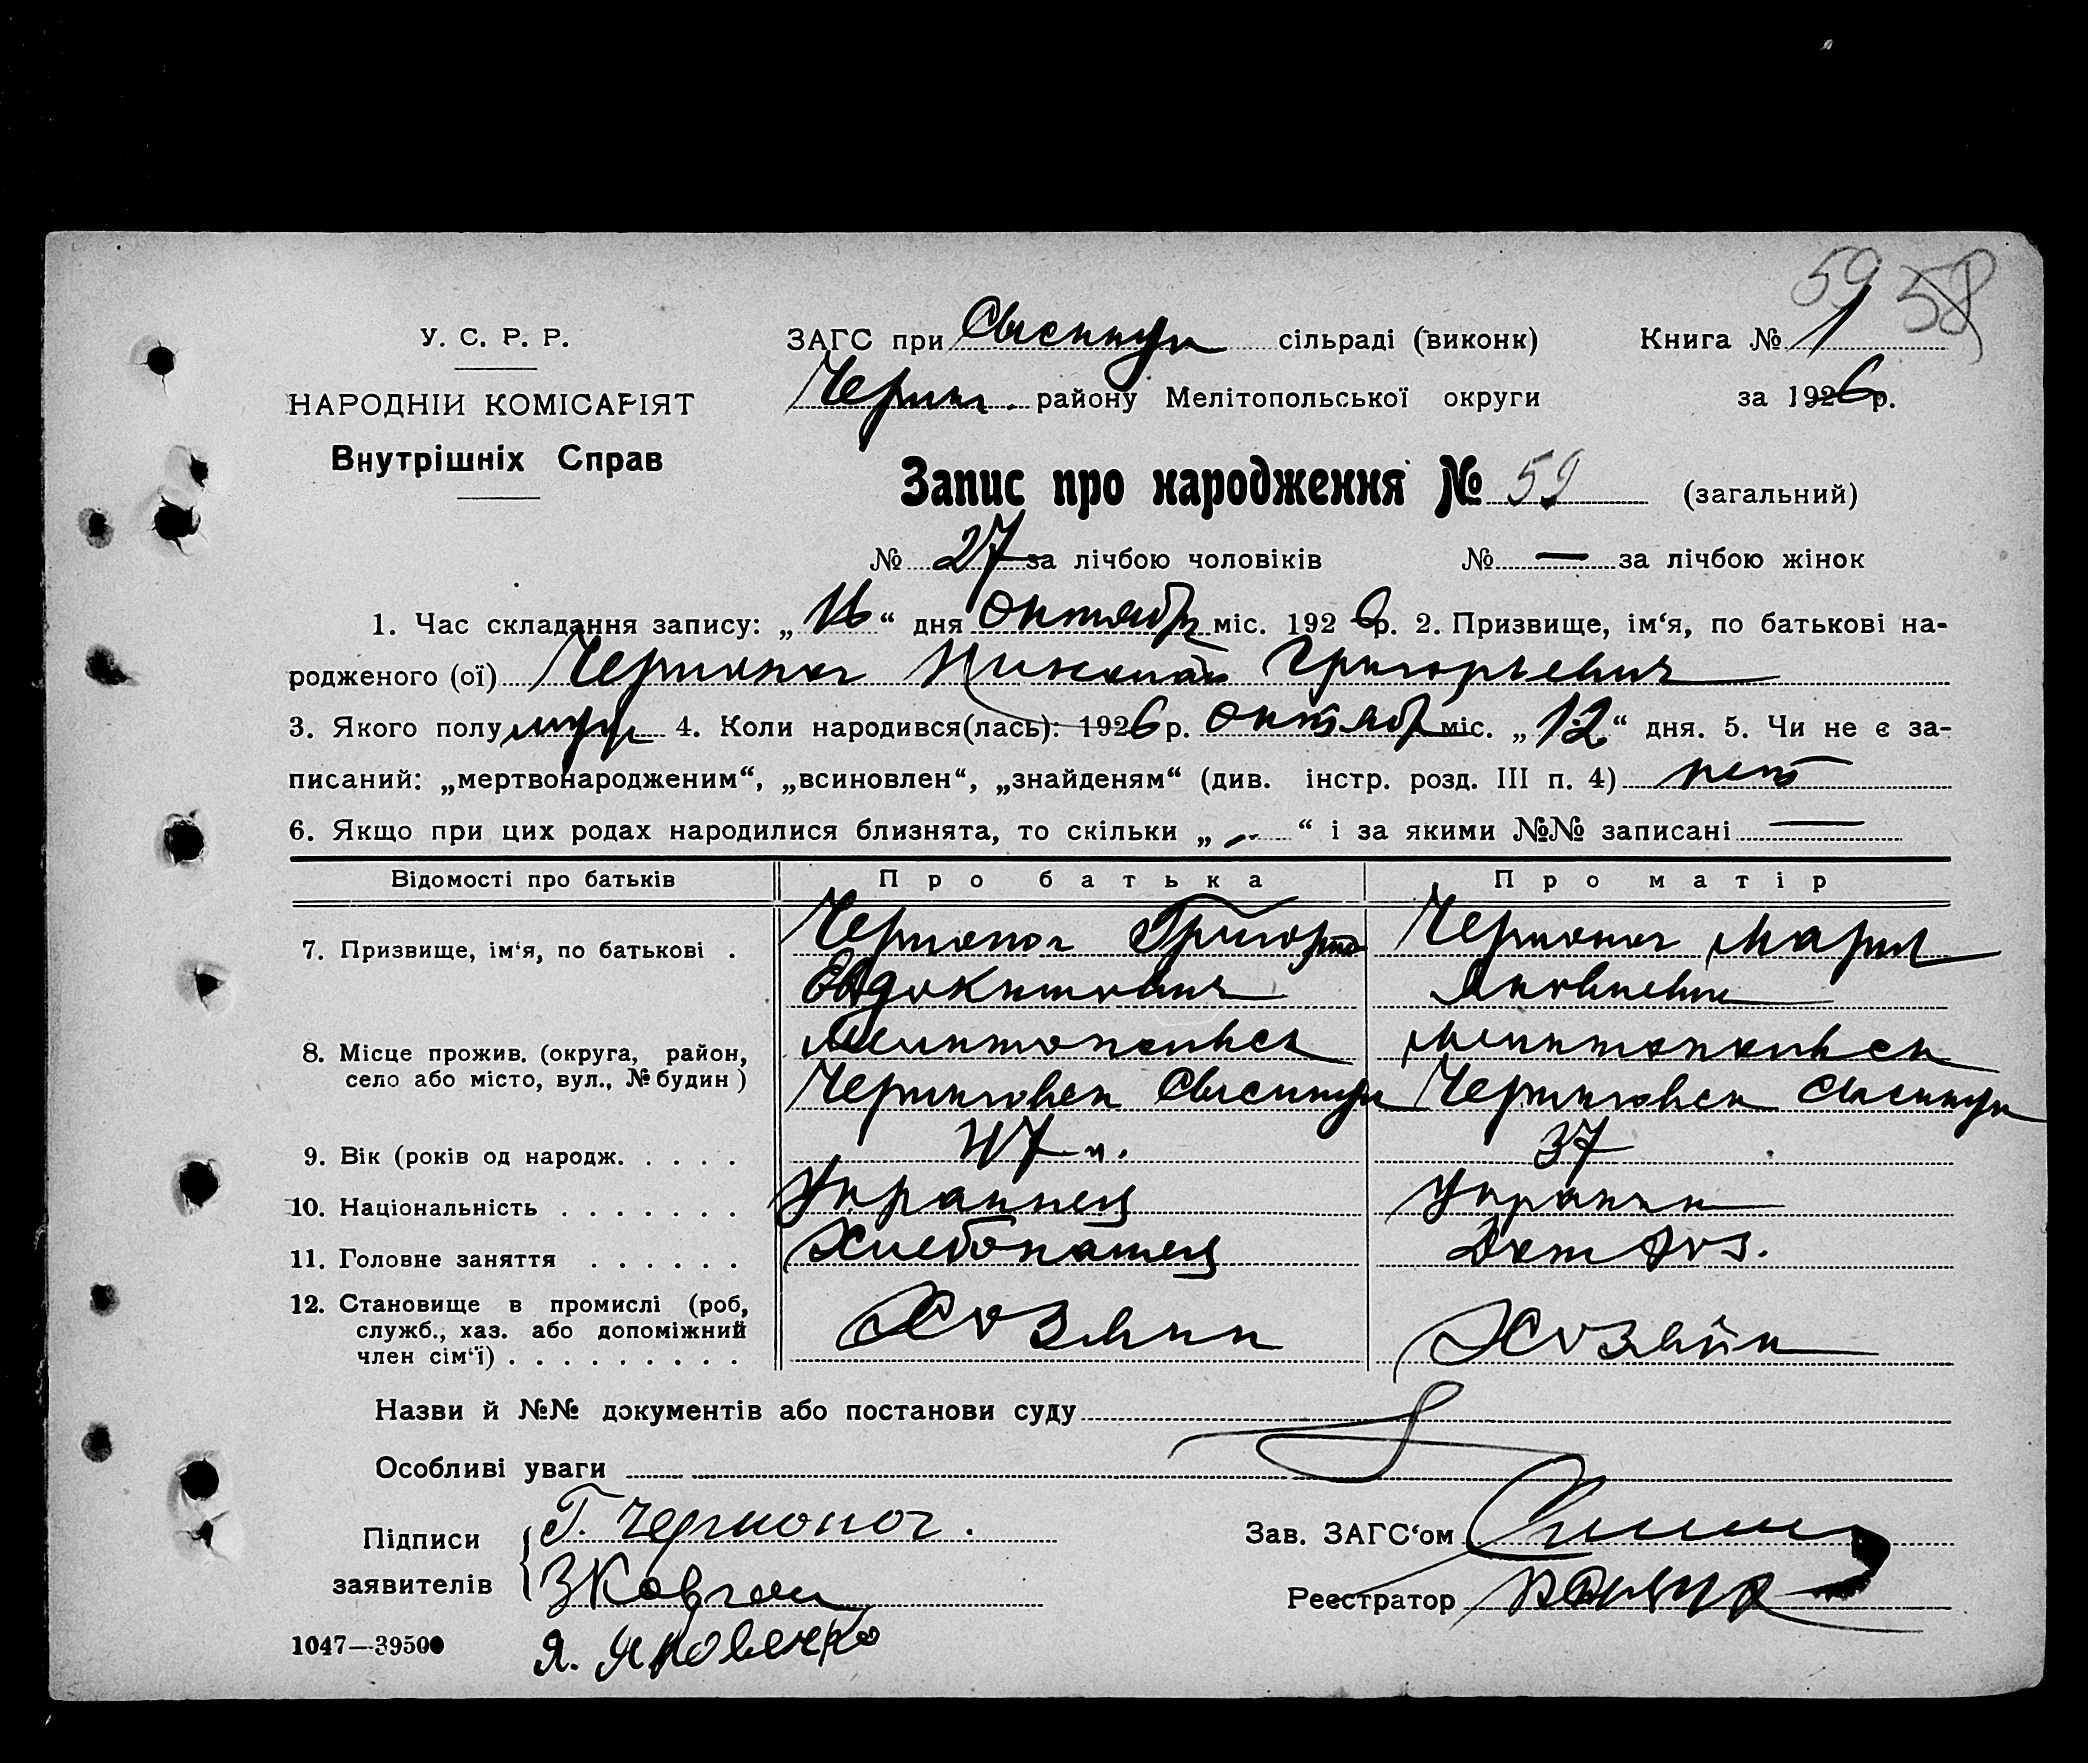 59 58
У. С. Р. Р.
НАРОДНІЙ КОМІСАРІЯТ
Внутрішніх Справ
ЗАГС при сільраді (виконк) Книга № 1
Черниг. району Мелітопольської округи за 1926 р.
Запис про народження № 59 (загальний)
№ 27 за лічбою чоловіків № — за лічбою жінок
1. Час складання запису: „16“ дня октября міс. 1926 р. 2. Призвище, ім‘я, по батькові на-
родженого (ої) Николай Григорьевич
3. Якого полу муж 4. Коли народився(лась): 1926 р. октябр міс. „12“ дня. 5. Чи не є за-
писаний: „мертвонародженим“, „всиновлен“, „знайденям“ (див. інстр. розд. III п. 4) нет
6. Якщо при цих родах народилися близнята, то скільки „-“ і за якими №№ записані —
Відомості про батьків Про батька Про матір
7. Призвище, ім‘я, по батькові . Григорий Мария
Евдокимович Яковлевна
8. Місце прожив. (округа, район, Мелитопольск Мелитопольск
село або місто, вул., № будин) Черниговск Черниговск
9. Вік (років од народж. . . . . 47 л. 37
10. Національність . . . . . . . Украинец Украинк
11. Головне заняття . . . . . . Хлебопашец Дом хоз.
12. Становище в промислі (роб, Хозяин Хозяйк
служб., хаз. або допоміжний
член сім‘ї) . . . . . . . . .
Назви й №№ документів або постанови суду
Особливі уваги
Підписи Г. Зав. ЗАГС‘ом
заявителів Реєстратор
1047—39500 Я. Яковенко